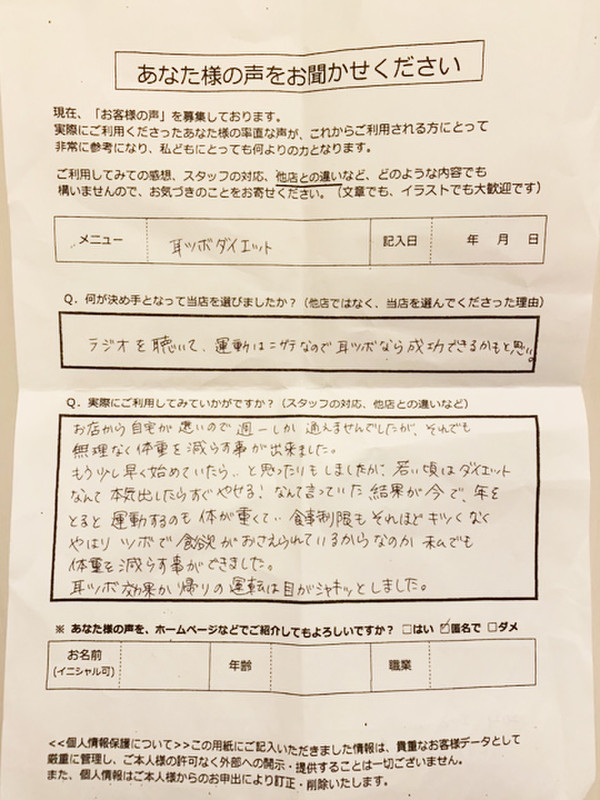 あなた様の声をお聞かせください
現在、「お客様の声」を募集しております。
実際にご利用くださったあなた様の率直な声が、これからご利用される方にとって
非常に参考になり、私どもにとっても何よりの力となります。
ご利用してみての感想、スタッフの対応、他店との違いなど、どのような内容でも
構いませんので、お気づきのことをお寄せください。（文章でも、イラストでも大歓迎です）
メニュー 耳ツボダイエット 記入日 年 月 日
Q．何が決め手となって当店を選びましたか？（他店ではなく、当店を選んでくださった理由）
ラジオを聴いて、運動はニガテなので耳ツボなら成功できるかもと思い。
Q．実際にご利用してみていかがですか？（スタッフの対応、他店との違いなど）
お店から自宅が遠いので週一しか通えませんでしたが、それでも
無理なく体重を減らす事が出来ました。
もう少し早く始めていたら、と思ったりもしましたが、若い頃はダイエット
なんて本気出したらすぐやせる！なんて言っていた結果が今で、年を
とると運動するのも体が重くて、食事制限もそれほどキツくなく
やはりツボで食欲がおさえられているからなのか私でも
体重を減らす事ができました。
耳ツボ効果か帰りの運転は目がシャキッとしました。
※ あなた様の声を、ホームページなどでご紹介してもよろしいですか？ □はい ☑匿名で □ダメ
お名前 年齢 職業
(イニシャル可)
<<個人情報保護について>>この用紙にご記入いただきました情報は、貴重なお客様データとして
厳重に管理し、ご本人様の許可なく外部への開示・提供することは一切ございません。
また、個人情報はご本人様からのお申出により訂正・削除いたします。